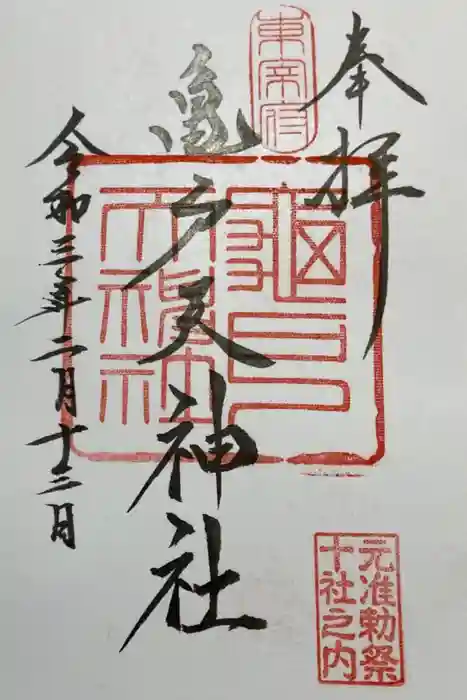 奉拝
東宰府
亀戸天神社
亀戸天神社
令和三年二月十二日
元准勅祭
十社之内